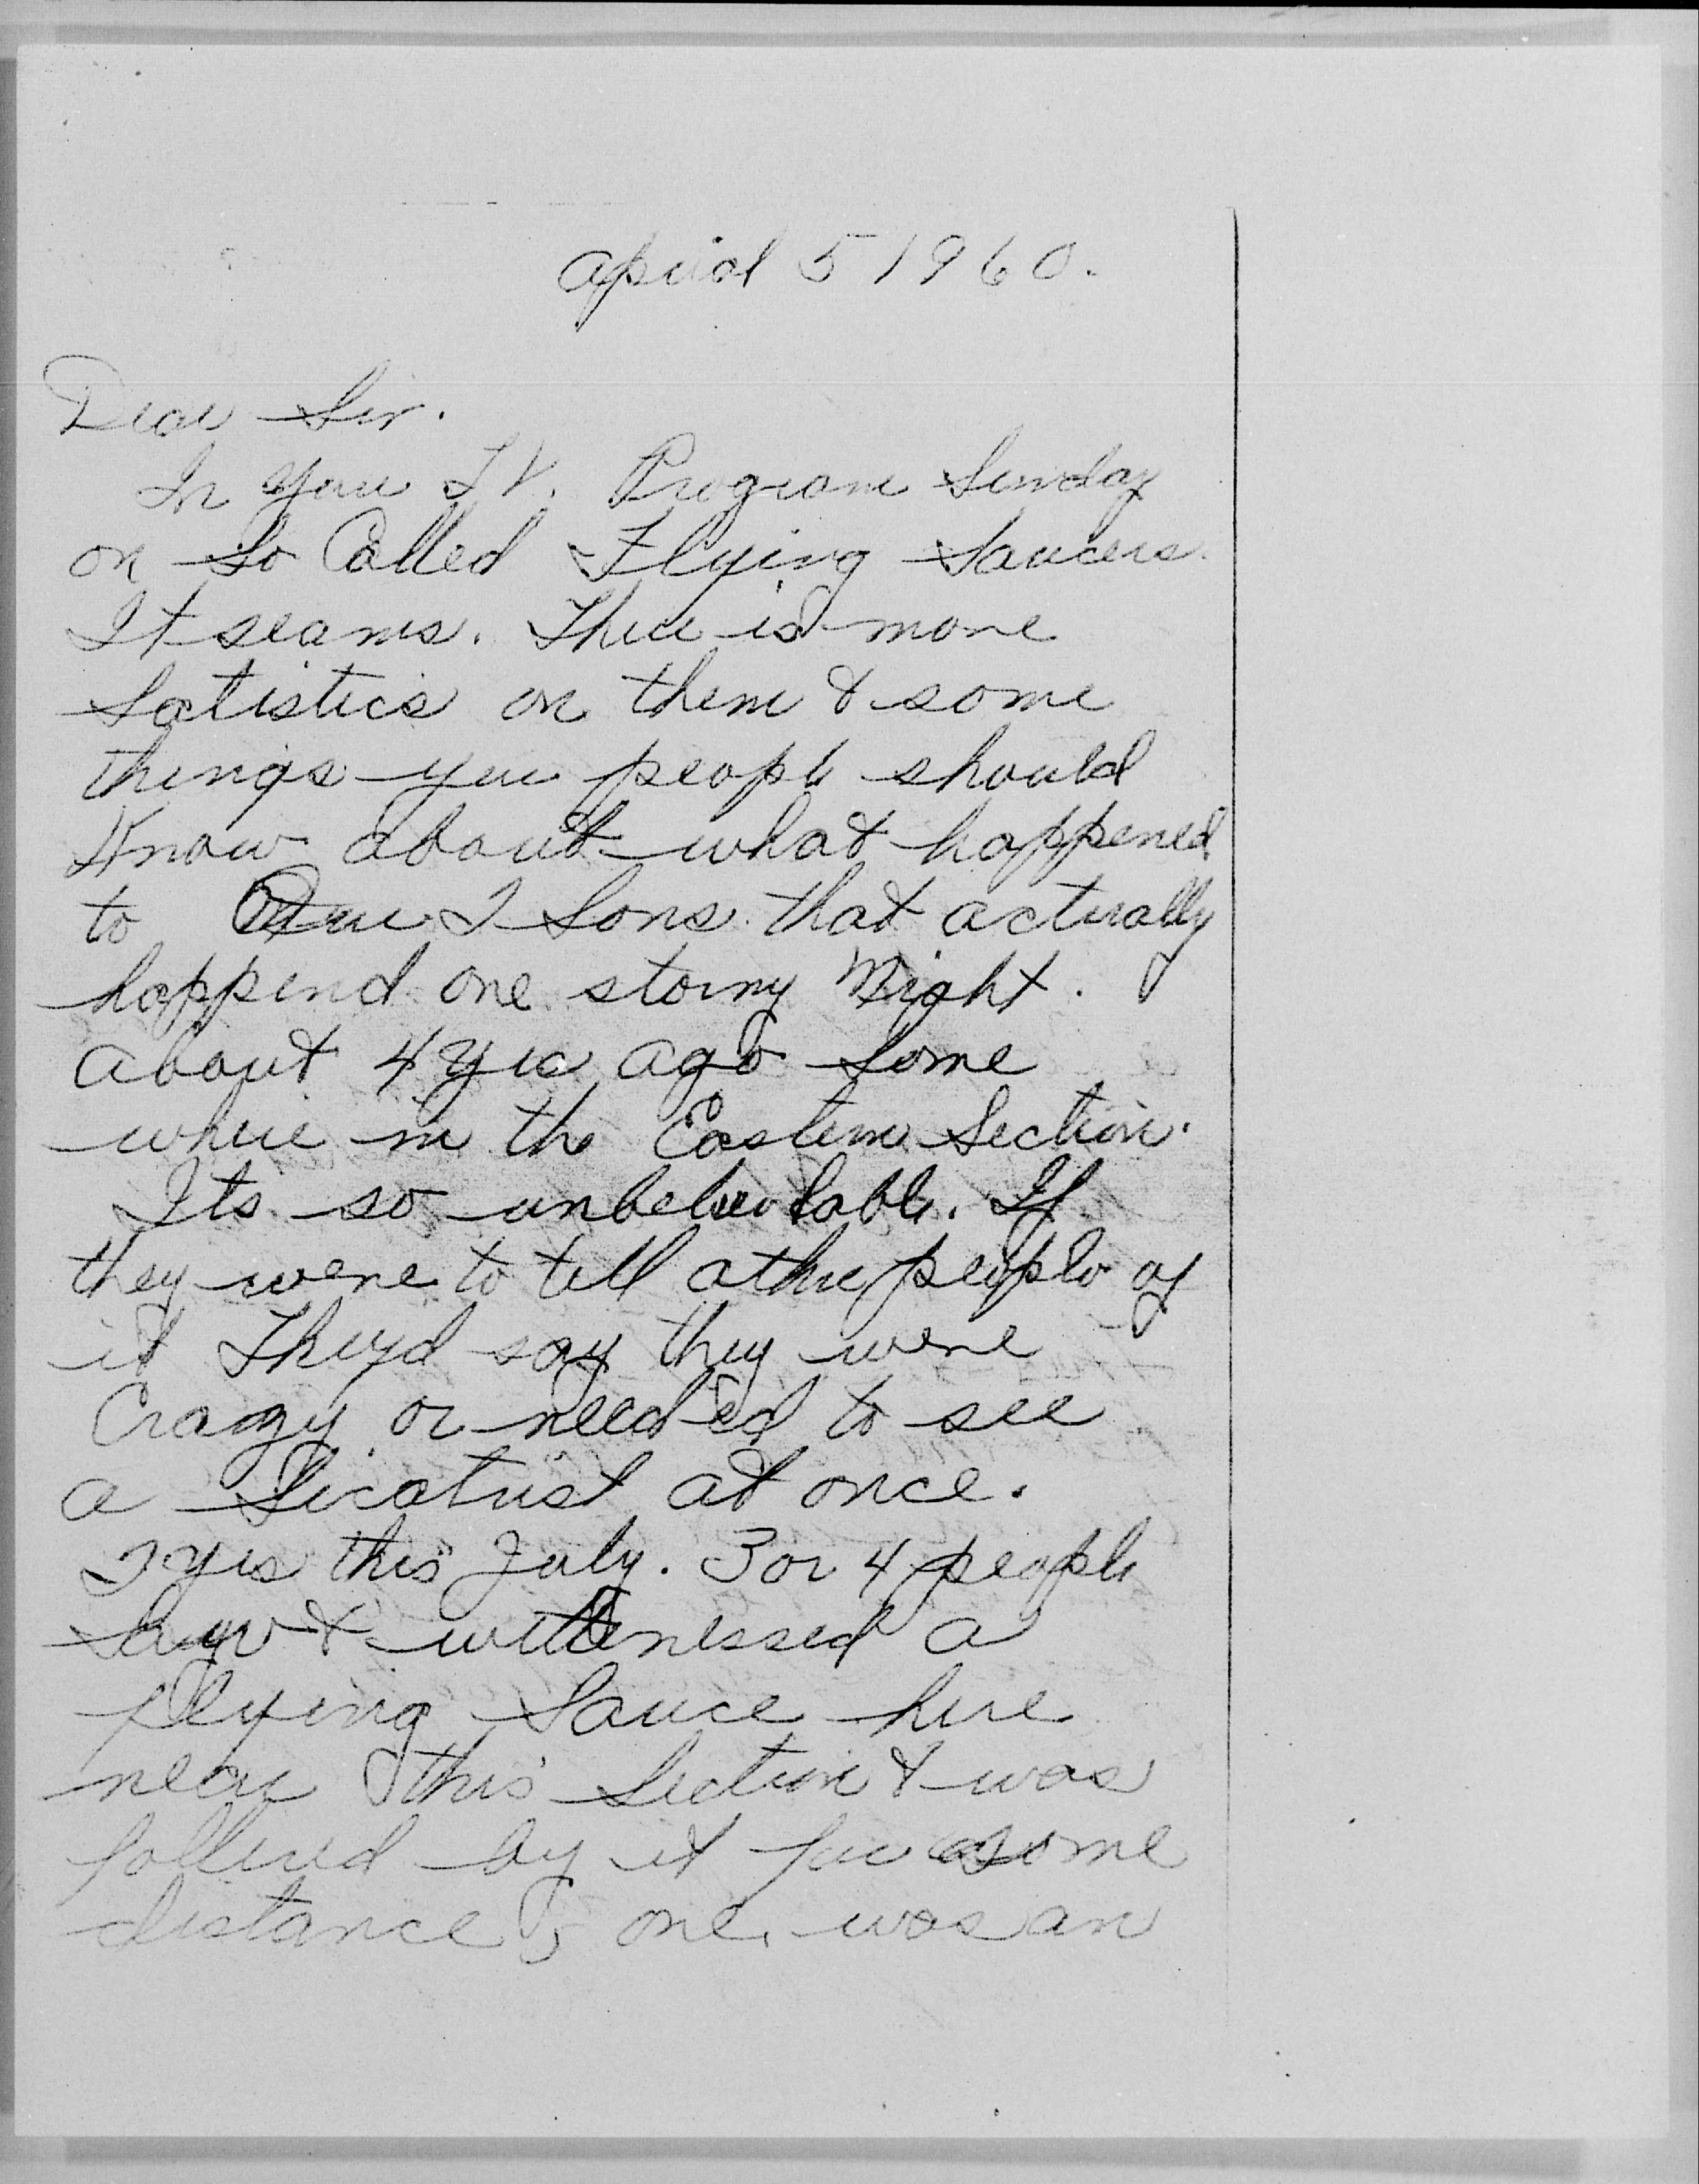 April 5 1960.
Dear Sir.
In your T.V. Program Sunday
on So Called Flying Saucers.
It seams. There is more
Satistics on them & some
things you people should
Know about what happened
to Our 2 Sons. that actually
happend one stormy Night.
about 4 yrs ago Some
where in the Eastern Section.
Its so unbelievlable. If
they were to tell other people of
it They'd say they were
Crazy or needed to see
a Sicatrist at once.
2 yrs this July. 3 or 4 people
saw & wittnessed a
flying Sauce here
near this Section & was
follwed by it for some
distance & one, was an